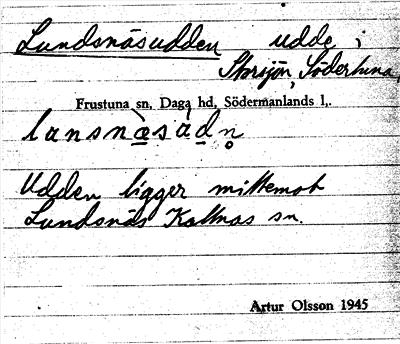 Lundsnäsudden udde i
Storsjön, Söderluna,
Frustuna sn, Daga hd, Södermanlands l,.
lansnæsàdn̥
Udden ligger mittemot
Lundsnäs Kattnäs sn.
Artur Olsson 1945